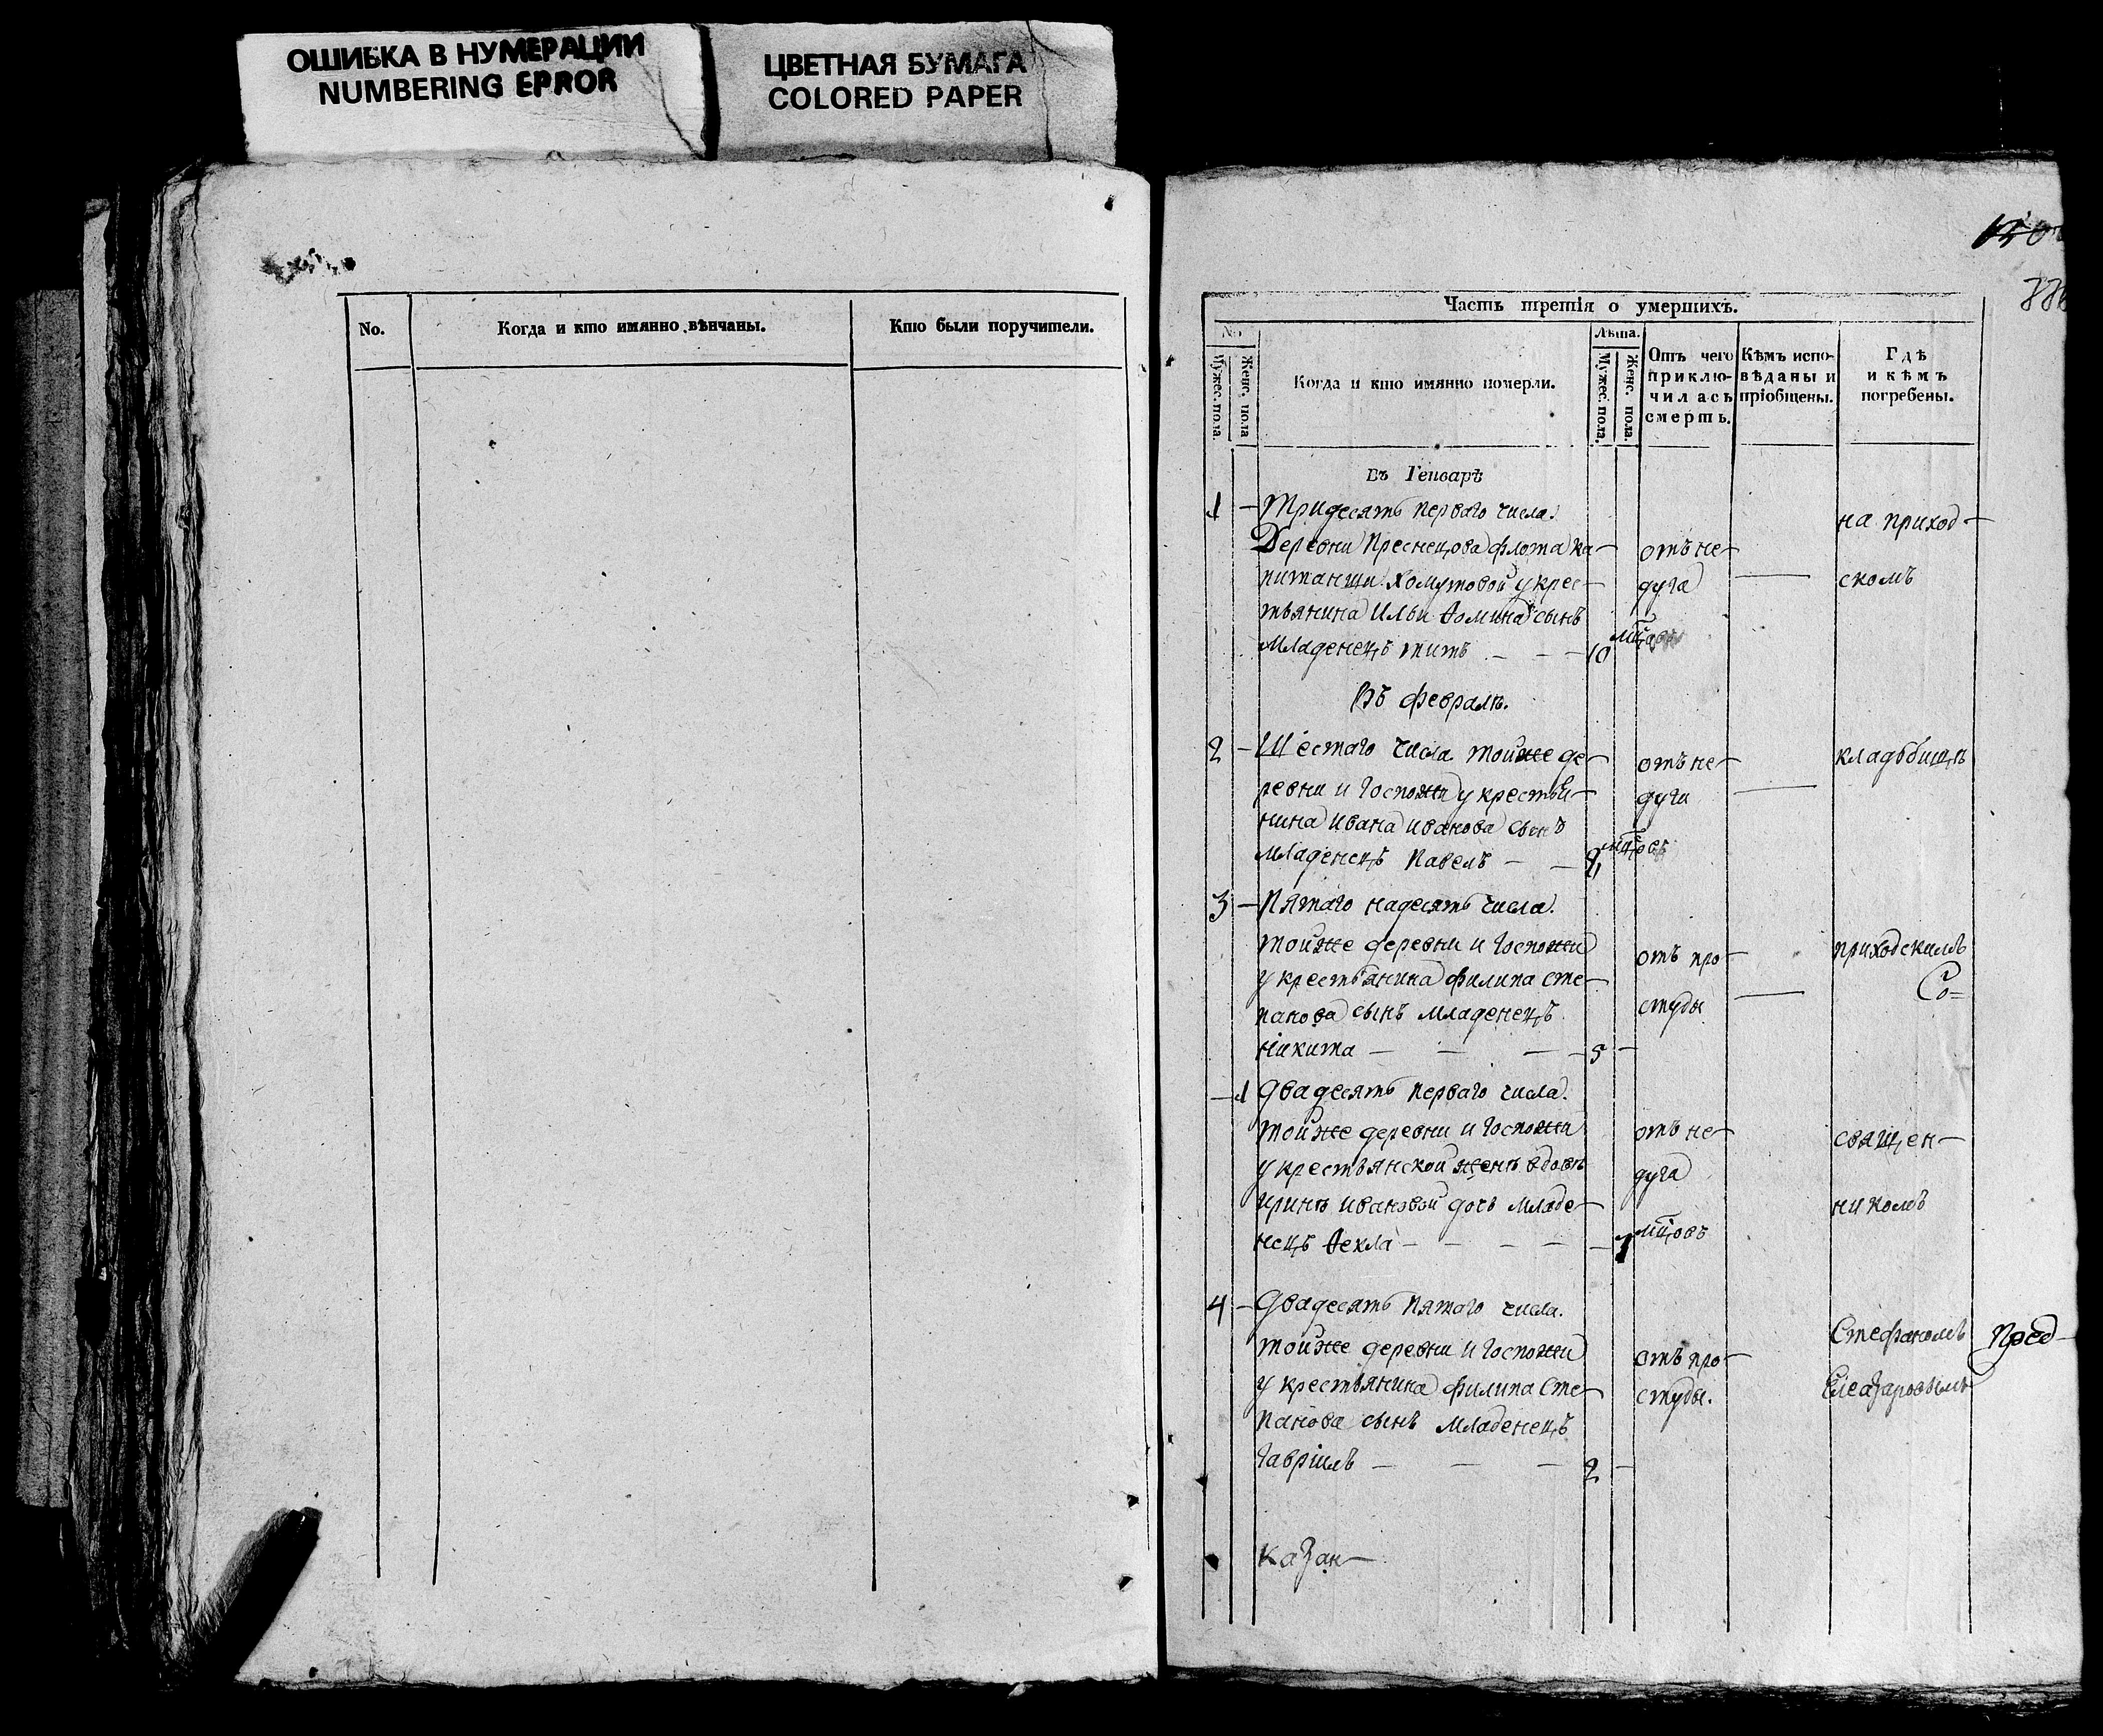 ОШИБКА В НУМЕРАЦИИ
NUMBERING ERROR
ЦВЕТНАЯ БУМАГА
COLORED PAPER
No.
Когда и кто имянно вѣнчаны.
Кто были поручители.
Часть третія о умершихъ.
No.
Мужес. пола.
Женс. пола
Когда и кто имянно померли.
Лѣта.
Мужес. пола.
Женс. пола.
Отъ чего
приклю-
чилась
смерть.
Кѣмъ испо-
вѣданы и
пріобщены.
Гдѣ
и кѣмъ
погребены.
Въ Генварѣ
1 — Тридесять перваго числа.
Деревни Преснецова флота ка-
питанши Хомутовой у крес-
тьянина Ильи Ѳомина сынъ
младенецъ титъ — — — 10
отъ не-
дуга
на приход-
скомъ
Въ февралѣ.
2 — Шестаго числа тойже де-
ревни и Госпожи у крестья-
нина ивана иванова сынъ
младенецъ Павелъ — — 9
мцовъ
отъ не-
дуги
кладбищѣ
3 — Пятаго надесять числа.
тойже деревни и Госпожи
у крестьянина филипа сте-
панова сынъ младенецъ
Никита — — — 5 —
отъ про-
студы
приходскимъ
Со=
— 1 Двадесять перваго числа.
тойже деревни и Госпожи
у крестьянской женѣ вдовѣ
иринѣ ивановой дочь младе-
нецъ Ѳекла — — — — — 7
мцовъ
отъ не-
дуга
священ-
никомъ
4 — Двадесять пятаго числа.
тойже деревни и Госпожи
у крестьянина филипа сте-
панова сынъ младенецъ
Гавріилъ — — — 2 —
отъ про-
студы.
Стефаномъ
Елеазаровымъ
Пред-
казан-